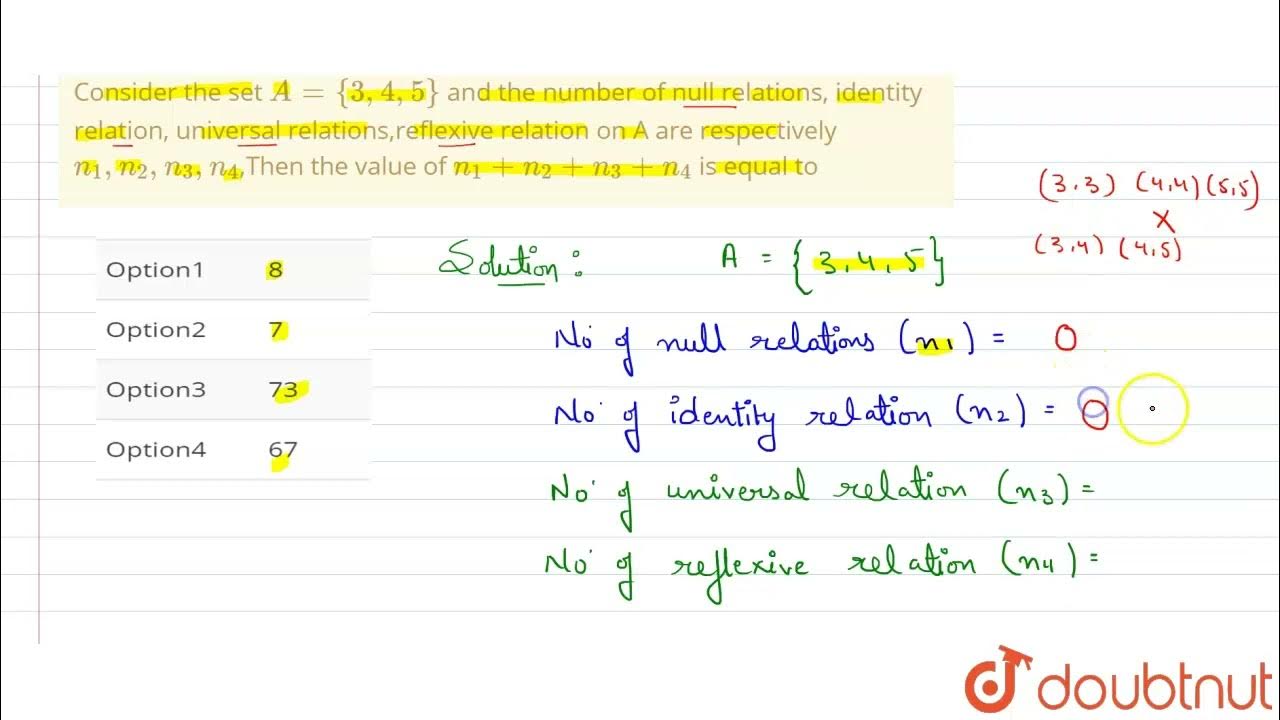 Consider the set A = {3, 4, 5} and the number of null relations, identity
relation, universal relations,reflexive relation on A are respectively
n₁, n₂, n₃, n₄,Then the value of n₁ + n₂ + n₃ + n₄ is equal to
(3,3) (4,4) (5,5)
×
(3,4) (4,5)
Option1 8
Option2 7
Option3 73
Option4 67
Solution : A = {3, 4, 5}
No of null relations (n₁) = 0
No of identity relation (n₂) = 0
No of universal relation (n₃) =
No of reflexive relation (n₄) =
doubtnut